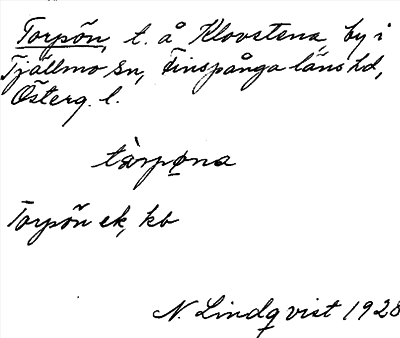 Torpõn, t. å Klovstena, by i
Tjällmo sn, Finspånga läns hd,
Österg. l.
tàrpo̢na
Torpõn ek, kb
N. Lindqvist 1928